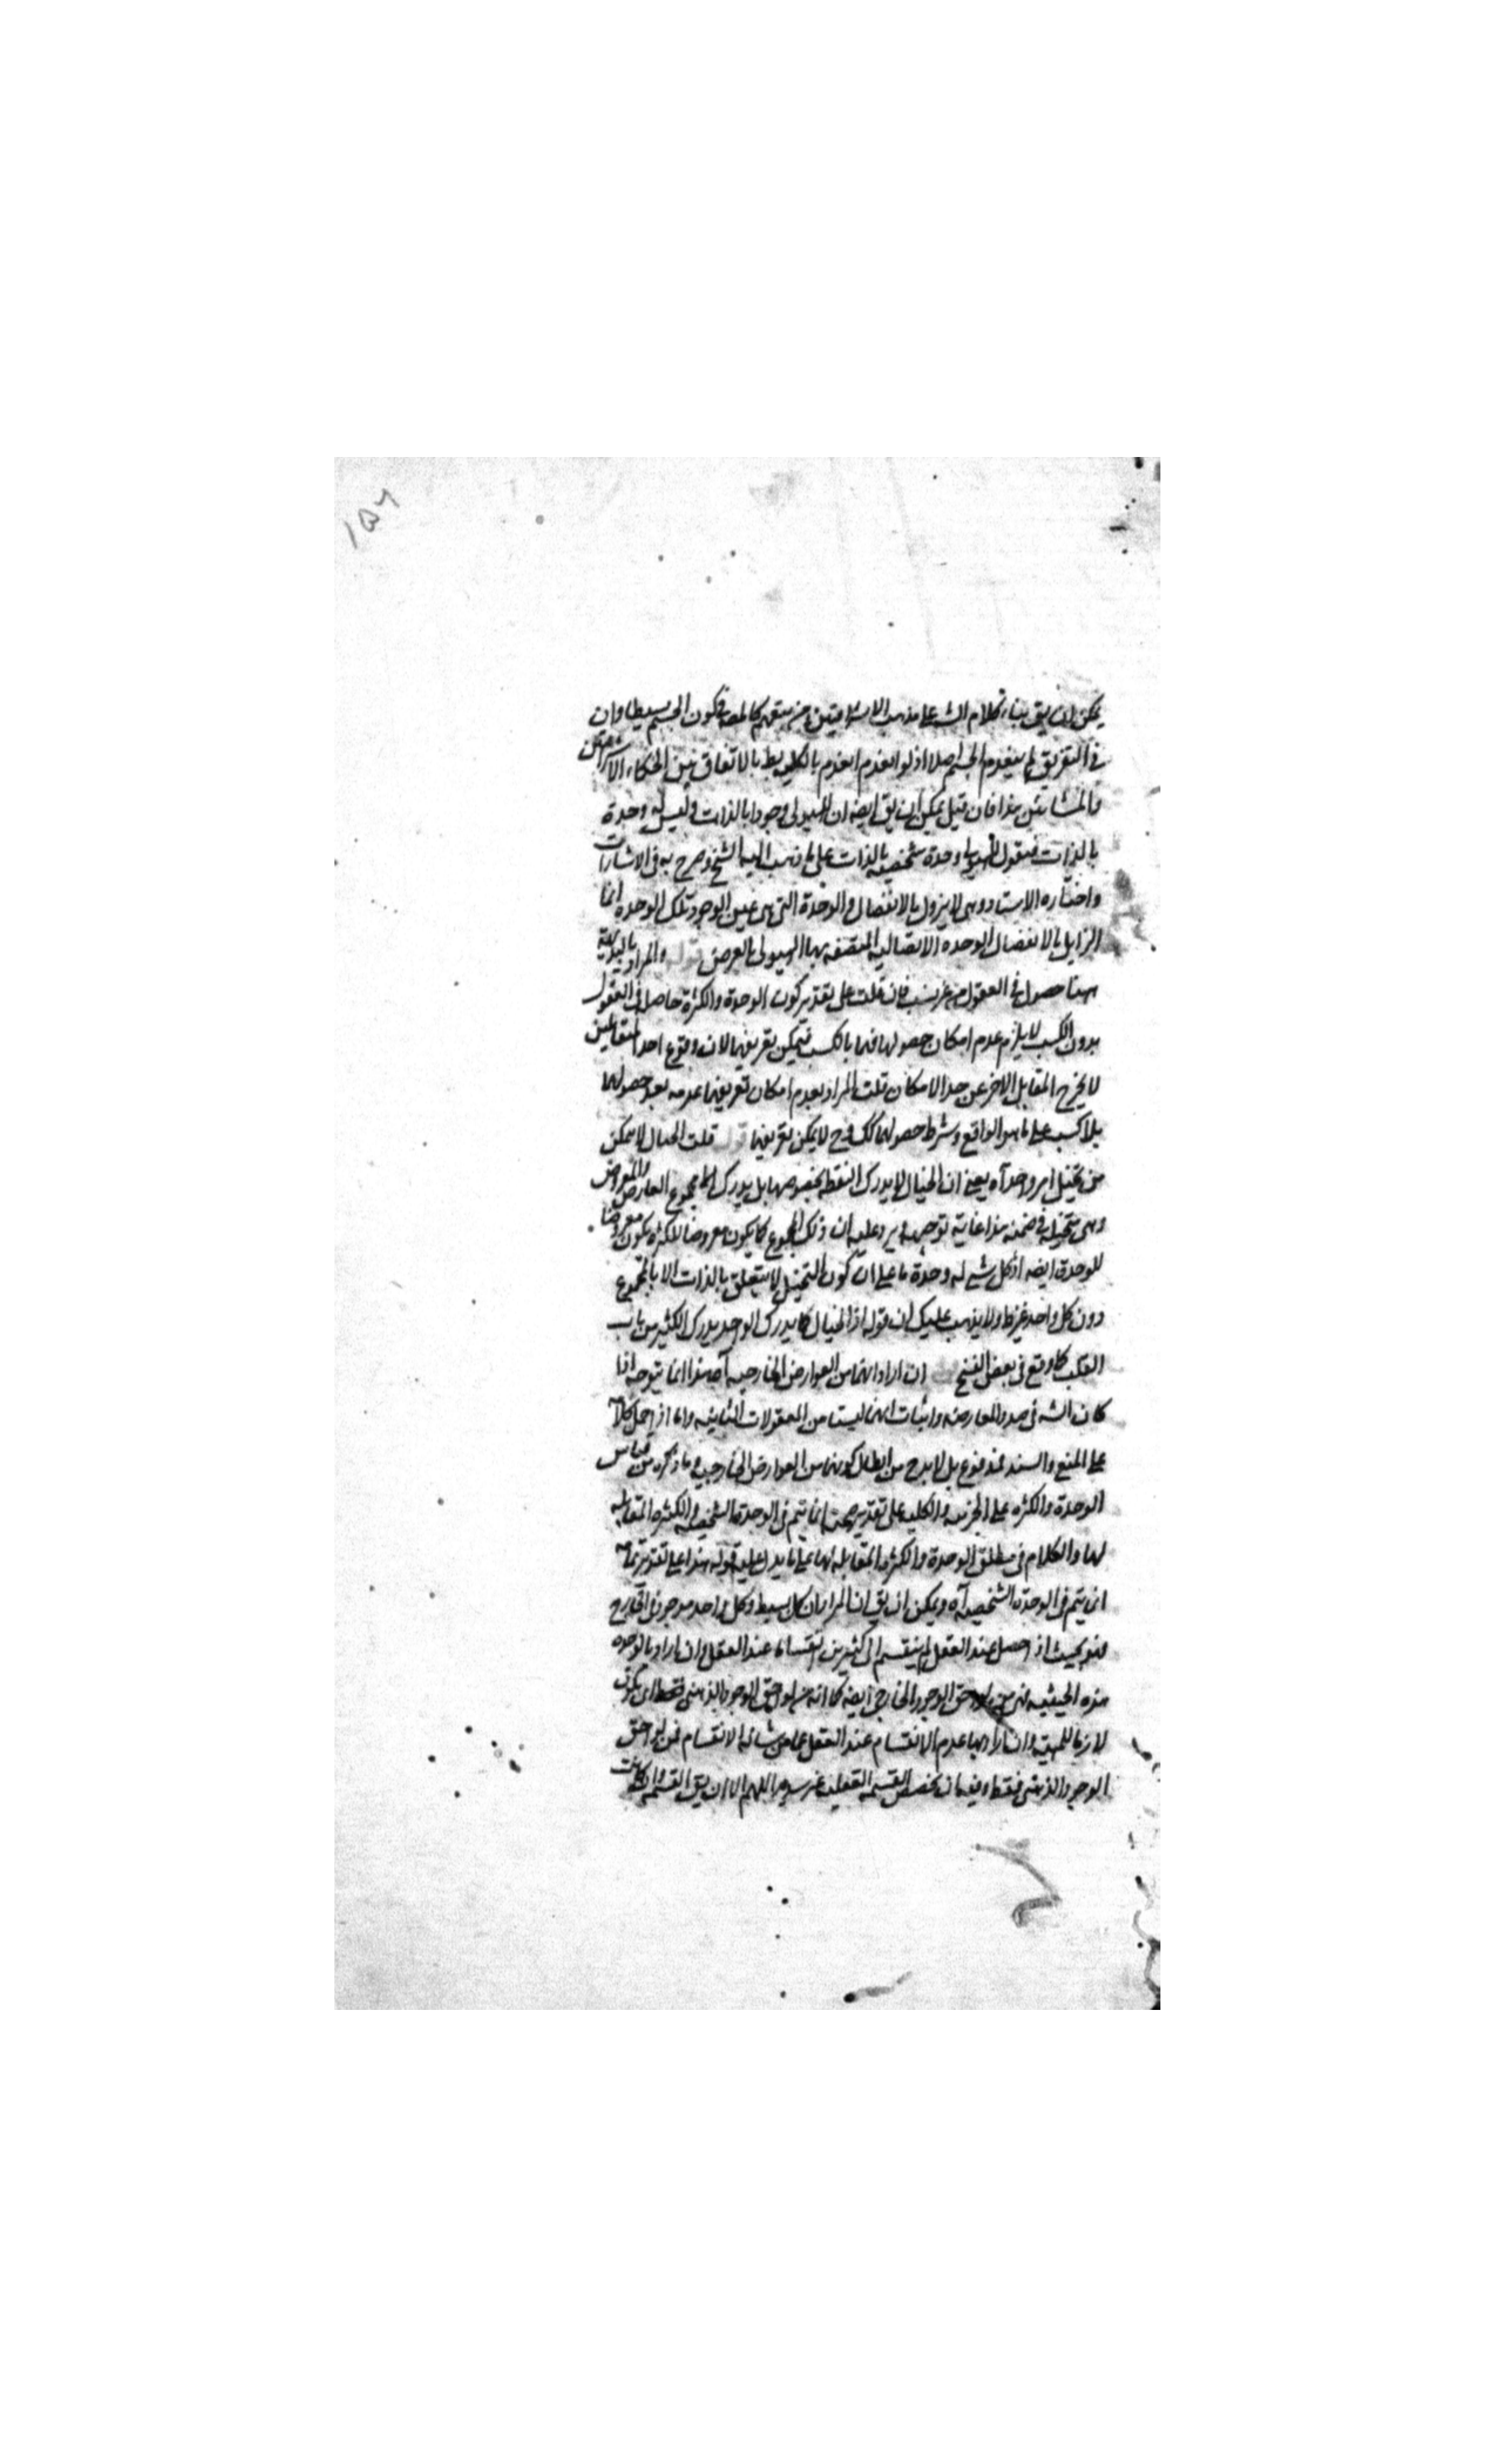 ١٥٦
يمكن ان يق بناء كلام الش على مذهب الاشراقيين ومن يتبعهم كالمص في كون الجسم بسيطا وان
في التفريق لم ينعدم الجسم اصلا اذ لو انعدم انعدم بالكلية بط بالاتفاق بين الحكماء الاشراقيين
والمشائين هذا فان قيل يمكن ان يق ايضه ان للهيولى وجودا بالذات وليس له وحدة
بالذات فنقول للهيولى وحدة شخصية بالذات على ما ذهب اليه الشيخ وصرح به في الاشارات
واختاره الاستاد وهى لا يزول بالانفصال والوحدة التى هى عين الوجود تلك الوحدة انما
الزايل بالانفصال الوحده الاتصاليه المتصفه بها الهيولى بالعرض قوله والمراد بالبديهة
ههنا حصول في العقول من غير كسب فان قلت على تقدير كون الوحدة والكثرة حاصل في العقول
بدون الكسب لا يلزم عدم امكان حصولها فيها بالكسب فيمكن تعريفهما لان وقوع احد المتقابلين
لا يخرج المقابل الاخر عن حد الامكان قلت المراد بعدم امكان تعريفهما عدمه بعد حصولهما
بلا كسب على ما هو الواقع وشرط حصولهما كك وح لا يمكن تعريفهما قوله قلت الخيال لا يمكن
من تخيل امر واحد آه يعني ان الخيال لا يدرك النقطة بخصوصها بل يدرك مجموع العارض والمعروض
وهى متخيلة في ضمنه هذا غاية توجيهه ويرد عليه ان ذلك المجموع كما يكون معروضا للكثره يكون معروضا
للوحدة ايضه اذ كل شيء له وحدة ما على ان كون التخيل لا يتعلق بالذات الا بالمجموع
دون كل واحد غير ظ ولا يذهب عليك ان قوله اذ الخيال كما يدرك الواحد يدرك الكثير من باب
القلب كما وقع في بعض النسخ ان اراد انهما من العوارض الخارجيه آه هذا انما يتوجه اذا
كان الشه في صدد المعارضه واثبات انهما ليست من المعقولات الثانيه واما اذ احمل كلامه
على المنع والسند فمدفوع بل لا بد ح من ابطال كونهما من العوارض الخارجيه وما ذكره من قياس
الوحدة والكثره على الجزئيه والكليه على تقدير صحته انما يتم في الوحدة الشخصيه والكثره المقابله
لها والكلام في مطلق الوحدة والكثره المقابله لها على ما يدل عليه قوله هذا على تقدير تمامه
انما يتم في الوحدة الشخصيه آه ويمكن ان يق ان المراد ان كل بسيط وكل واحد موجود في الخارج
فهو بحيث اذ احصل عند العقل لم ينقسم الى كثيرين انقساما عند العقل وان اراد بالوحده
هذه الحيثيه فهى من لواحق الوجود الخارجي ايضه كما انه من لواحق الوجود الذهنى فقط اى يكون
لازما للمهيه وان اراد بها عدم الانقسام عند العقل عما من شانه الانقسام فمن لواحق
الوجود الذهنى فقط وفيه ان تخصيص القسمه العقليه غير سديد اللهم الا ان يق القسمه وان كانت